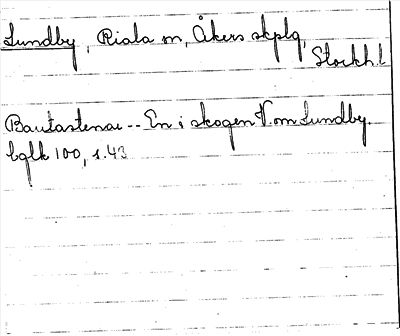 Lundby, Riala sn, Åkers skplg,
Stockh.l
Bautastenar -- En i skogen V. om Lundby.
bglk 100, s. 43